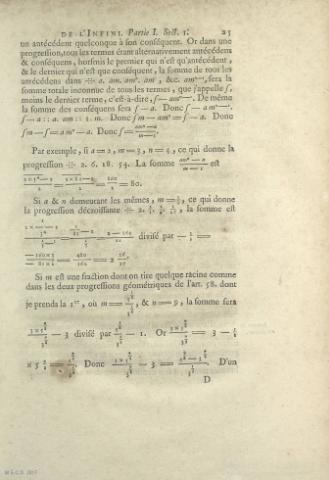 DE L'INFINI. Partie I. Sect. I. 25
un antécédent quelconque à son conséquent. Or dans une
progression, tous les termes étant alternativement antécédens
& conséquens, horsmis le premier qui n'est qu'antécédent,
& le dernier qui n'est que conséquent, la somme de tous les
antécédens dans ∺ a. am. am². am³. &c. amⁿ⁻¹, sera la
somme totale inconnue de tous les termes, que j'appelle ſ,
moins le dernier terme, c'est-à-dire, ſ — amⁿ⁻¹. De même
la somme des conséquens sera ſ — a. Donc ſ — amⁿ⁻¹.
ſ — a :: a. am :: 1. m. Donc ſm — amⁿ = ſ — a. Donc
ſm — ſ = amⁿ — a. Donc ſ = amⁿ — a / m — 1.
Par exemple, si a = 2, m = 3, n = 4, ce qui donne la
progression ∺ 2. 6. 18. 54. La somme amⁿ — a / m — 1 est
2×3⁴ — 2 / 2 = 2×81 — 2 / 2 = 160 / 2 = 80.
Si a & n demeurant les mêmes, m = 1/3, ce qui donne
la progression décroissante ∺ 2. 2/3. 2/9. 2/27, la somme est
divisé par — 2/3 =
Si m est une fraction dont on tire quelque racine comme
dans les deux progressions géométriques de l'art. 58. dont
je prends la 1ʳᵉ, où & n = 9, la somme sera
— 3 divisé par — 1. Or = 3 —
Donc — 3 = D'un
D